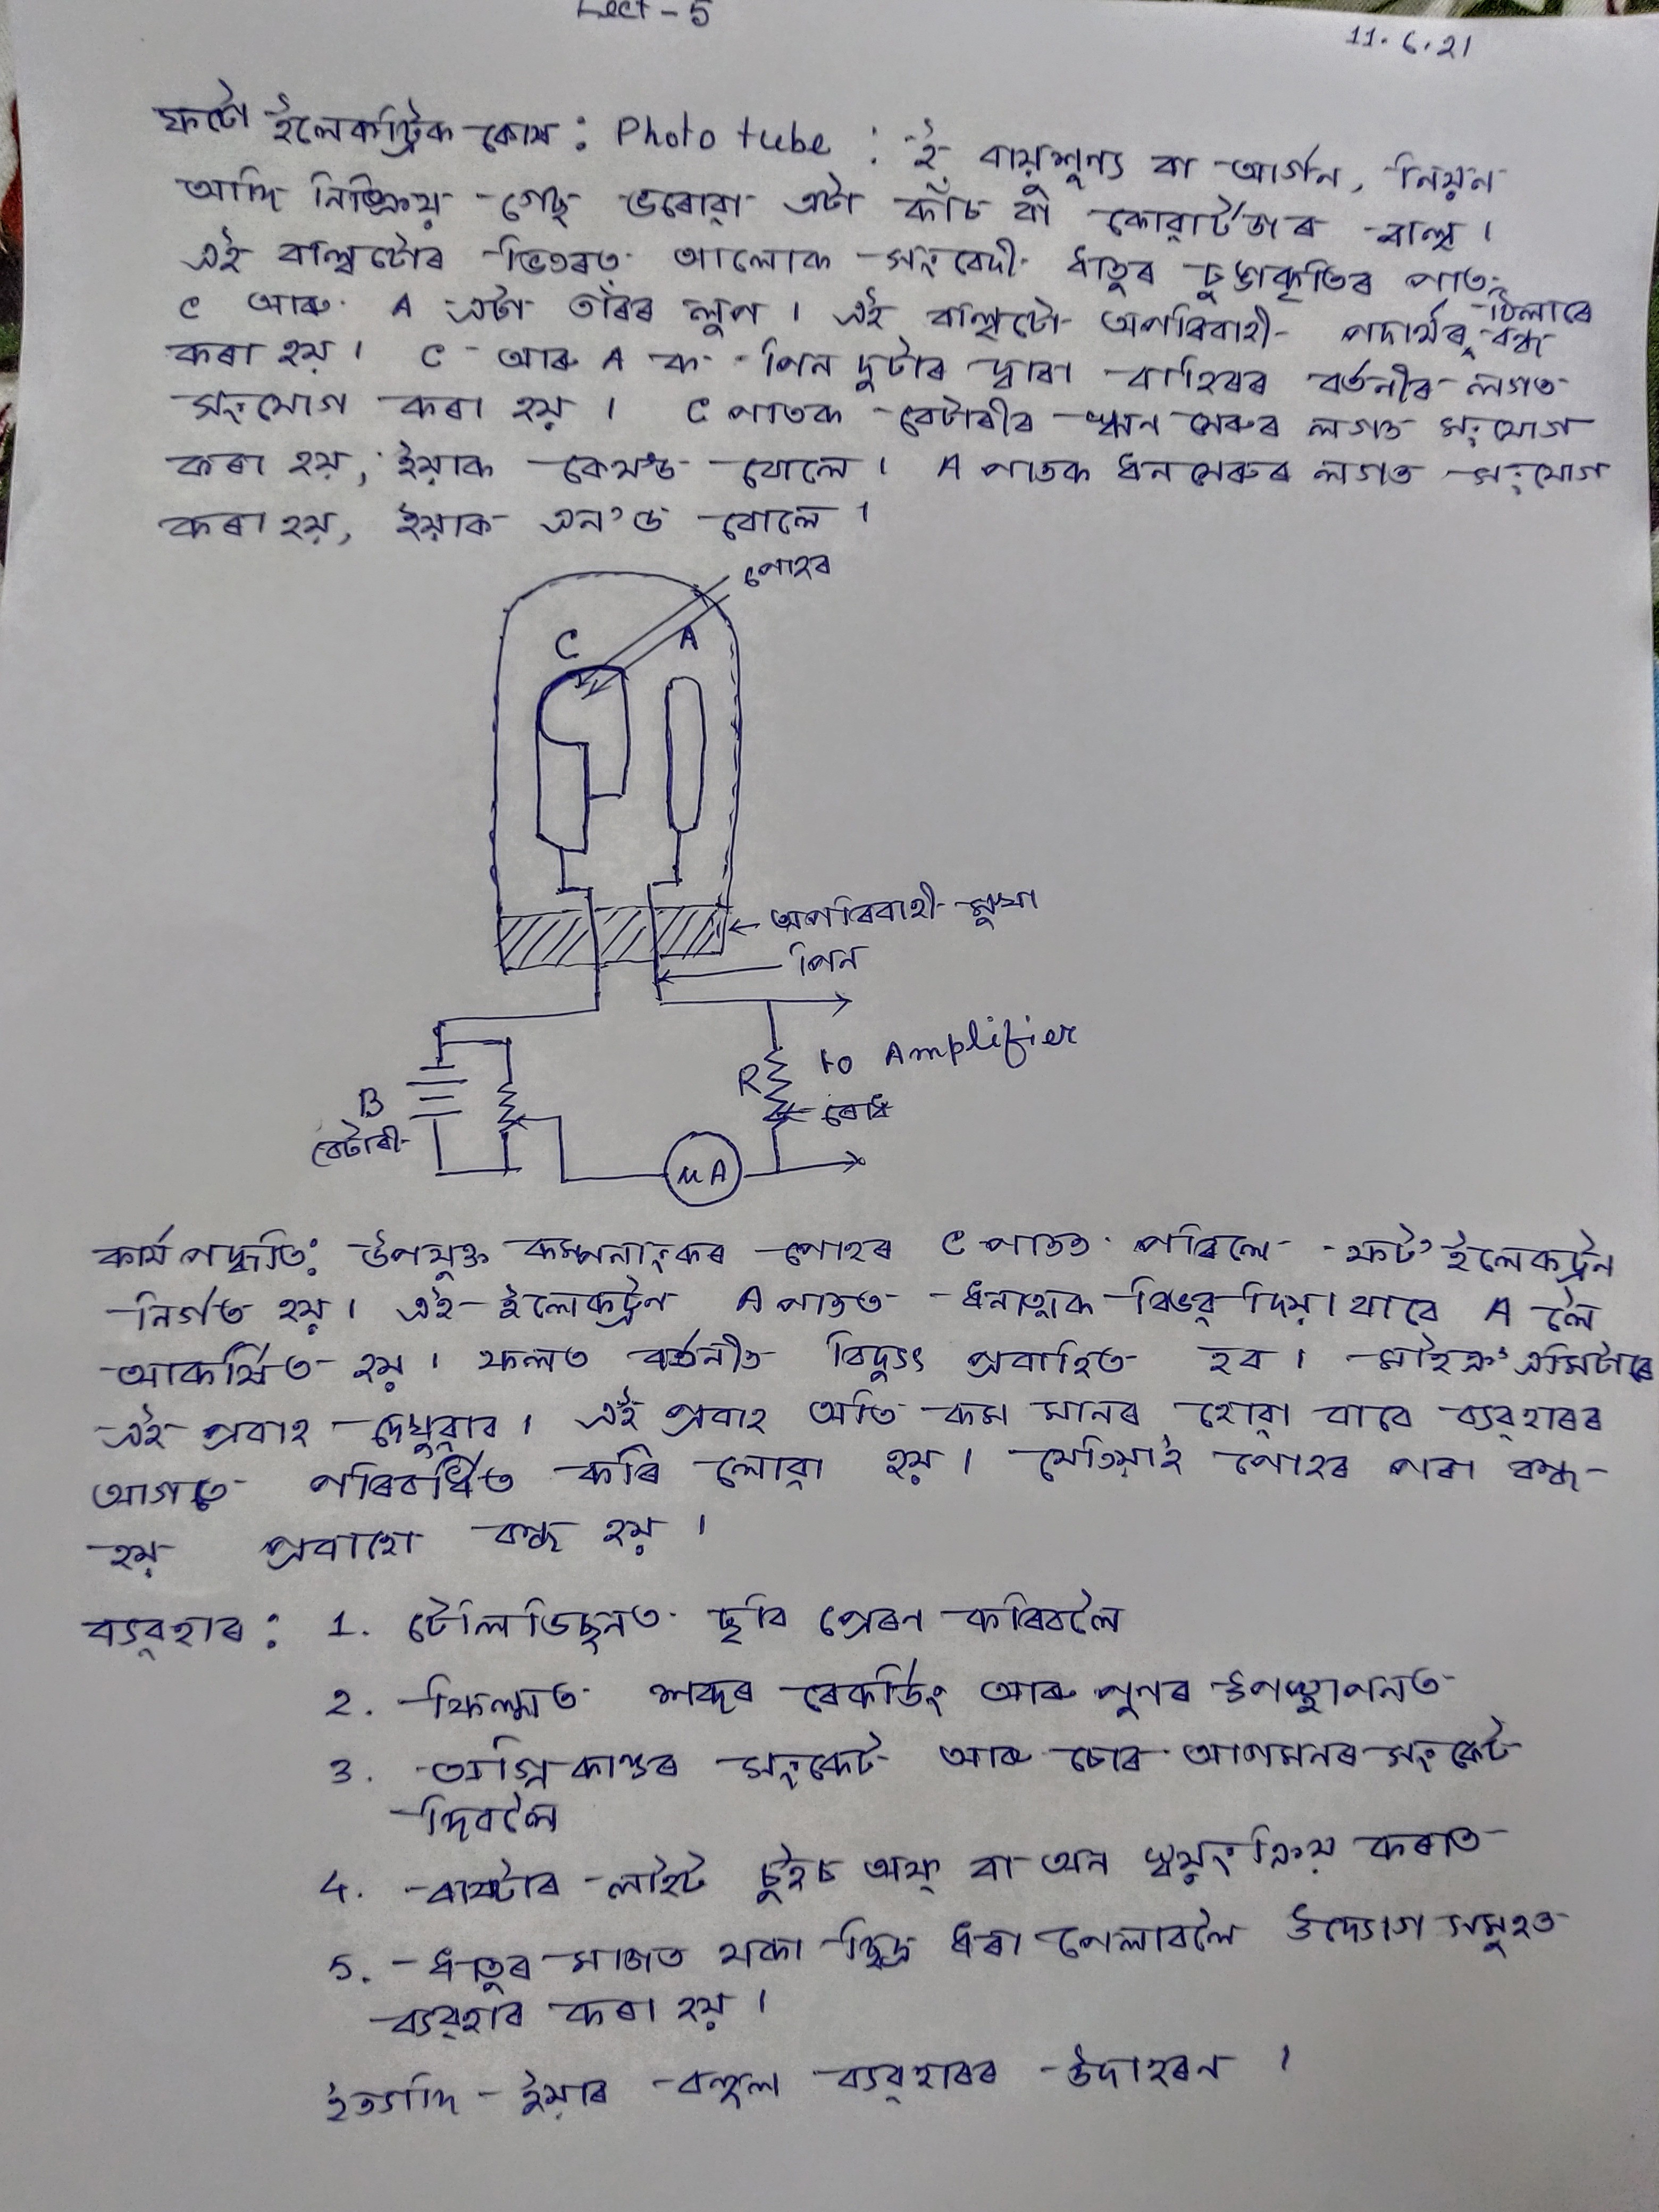 Lect - 5
11.6.21
ফটো ইলেকট্ৰিক কোষ : Photo tube : ই বায়ুশূণ্য বা আৰ্গন, নিয়ন
আদি নিষ্ক্ৰিয় গেছ ভৰোৱা এটা কাঁচ বা কোৱাৰ্টজৰ বাল্ব ।
এই বাল্বটোৰ ভিতৰত আলোক সংবেদী ধাতুৰ চুঙাকৃতিৰ পাত
C আৰু A এটা তাঁৰৰ লুপ । এই বাল্বটো অপৰিবাহী পদাৰ্থৰ ঠিলাৰে বন্ধ
কৰা হয় । C আৰু A ক পিন দুটাৰ দ্বাৰা বাহিৰৰ বৰ্তনীৰ লগত
সংযোগ কৰা হয় । C পাতক বেটাৰীৰ ঋন মেৰুৰ লগত সংযোগ
কৰা হয়, ইয়াক কেথ'ড বোলে । A পাতক ধন মেৰুৰ লগত সংযোগ
কৰা হয়, ইয়াক এন'ড বোলে ।
পোহৰ
C
A
অপৰিবাহী মুখা
পিন
to Amplifier
R
ৰোধ
B
বেটাৰী
μA
কাৰ্য পদ্ধতি: উপযুক্ত কম্পনাংকৰ পোহৰ C পাতত পৰিলে ফট'ইলেকট্ৰন
নিৰ্গত হয় । এই ইলেকট্ৰন A পাতত ধনাত্মক বিভৱ দিয়া বাবে A লৈ
আকৰ্ষিত হয় । ফলত বৰ্তনীত বিদ্যুৎ প্ৰবাহিত হব । মাইক্ৰ'এমিটাৰে
এই প্ৰবাহ দেখুৱাব । এই প্ৰবাহ অতি কম মানৰ হোৱা বাবে ব্যৱহাৰৰ
আগতে পৰিবৰ্ধিত কৰি লোৱা হয় । যেতিয়াই পোহৰ পৰা বন্ধ
হয় প্ৰবাহো বন্ধ হয় ।
ব্যৱহাৰ : 1. টেলিভিছনত ছবি প্ৰেৰন কৰিবলৈ
2. ফিল্মত শব্দৰ ৰেকৰ্ডিং আৰু পুনৰ উপস্থাপনত
3. অগ্নিকাণ্ডৰ সংকেট আৰু চোৰ আগমনৰ সংকেট
দিবলৈ
4. ৰাস্টাৰ লাইট চুইচ অফ্ বা অন স্বয়ংক্ৰিয় কৰাত
5. ধাতুৰ মাজত থকা ছিদ্ৰ ধৰা পেলাবলৈ উদ্যোগ সমূহত
ব্যৱহাৰ কৰা হয় ।
ইত্যাদি ইয়াৰ বহুল ব্যৱহাৰৰ উদাহৰন ।